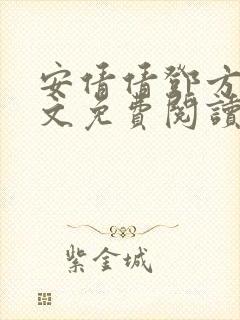 安倩倩鄧方
文免費閱讀
紫金城